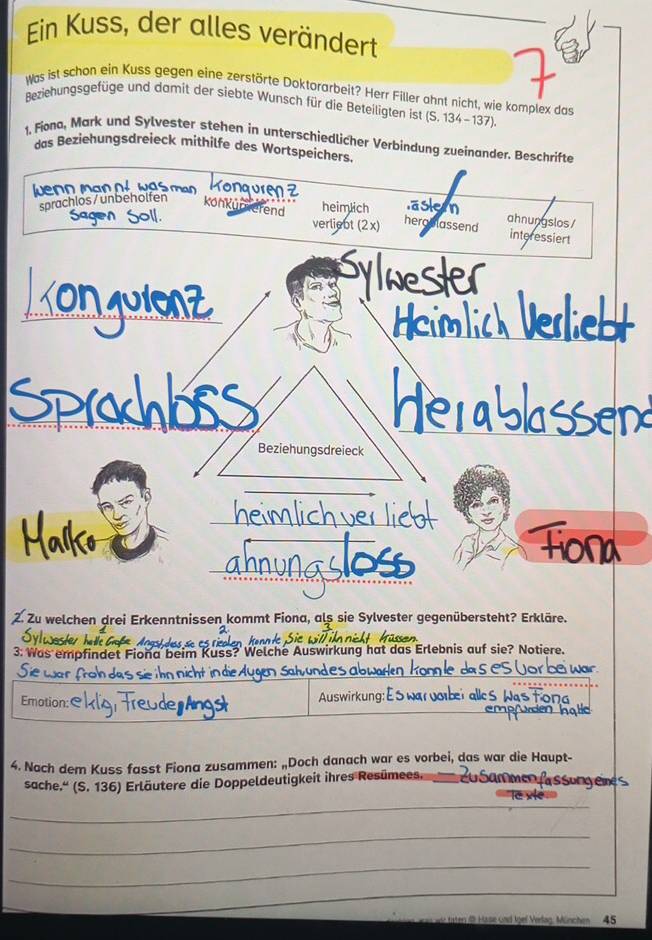 Ein Kuss, der alles verändert
7
Was ist schon ein Kuss gegen eine zerstörte Doktorarbeit? Herr Filler ahnt nicht, wie komplex das
Beziehungsgefüge und damit der siebte Wunsch für die Beteiligten ist (S. 134 – 137).
1. Fiona, Mark und Sylvester stehen in unterschiedlicher Verbindung zueinander. Beschrifte
das Beziehungsdreieck mithilfe des Wortspeichers.
wenn man nt was man
sprachlos/unbeholfen
sagen soll.
Konqurenz
konkurrierend
heimlich
verliebt (2x)
lästern
herablassend
ahnungslos/
interessiert
Sylwester
Konqurenz
Heimlich Verliebt
Sprachloss
Herablassend
Beziehungsdreieck
heimlich verliebt
Marko
Fiona
ahnungsloss
2. Zu welchen drei Erkenntnissen kommt Fiona, als sie Sylvester gegenübersteht? Erkläre.
1 2. 3.
Sylwester hatte Große Angst, dass sie es riechen konnte, Sie will ihn nicht küssen.
3. Was empfindet Fiona beim Kuss? Welche Auswirkung hat das Erlebnis auf sie? Notiere.
Sie war froh das sie ihn nicht in die Augen sah und es abwarten konnte das es vorbei war.
Emotion: eklig, Freude, Angst
Auswirkung: Es war vorbei alles was Fiona
empfunden hatte
4. Nach dem Kuss fasst Fiona zusammen: „Doch danach war es vorbei, das war die Haupt-
sache.“ (S. 136) Erläutere die Doppeldeutigkeit ihres Resümees. — Zusammenfassung eines
Texte
was wir taten © Hase und Igel Verlag, München 45